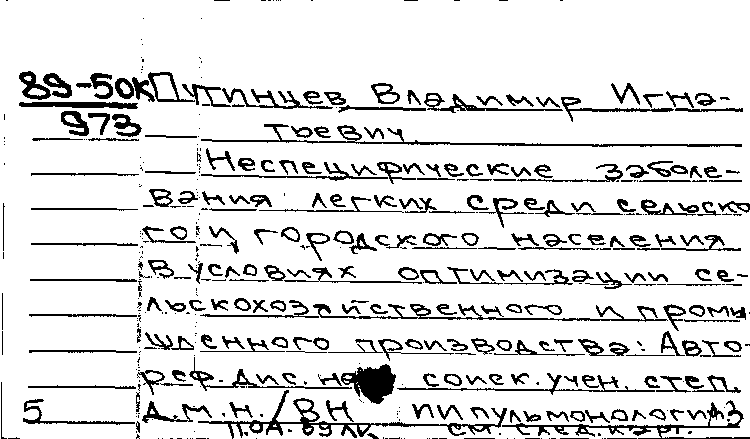 89-50к Путинцев Владимир Игна-
973 тьевич
Неспецифические заболе-
вания легких среди сельско
го и городского населения
в условиях оптимизации се-
льскохозяйственного и промы
шленного производства: Авто-
реф. дис. на соиск. учен. степ.
5 д.м.н. / ВН ИИ пульмонологии
см. след. карт.